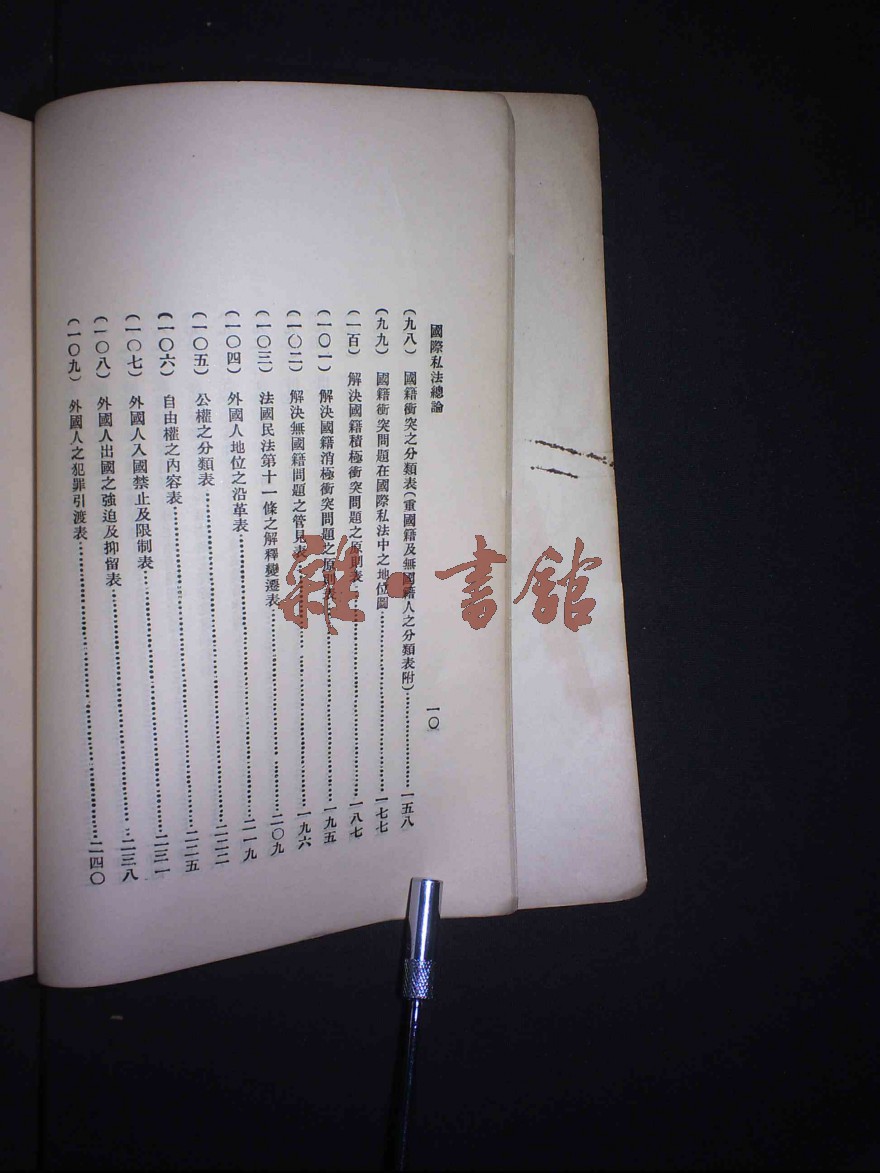 國際私法總論
一〇
(九八) 國籍衝突之分類表(重國籍及無國籍人之分類表附)…………一五八
(九九) 國籍衝突問題在國際私法中之地位圖…………一七七
(一百) 解決國籍積極衝突問題之原則表…………一八七
(一〇一) 解決國籍消極衝突問題之原則表…………一九五
(一〇二) 解決無國籍問題之管見表…………一九六
(一〇三) 法國民法第十一條之解釋變遷表…………二〇九
(一〇四) 外國人地位之沿革表…………二一九
(一〇五) 公權之分類表…………二二二
(一〇六) 自由權之內容表…………二二五
(一〇七) 外國人入國禁止及限制表…………二三一
(一〇八) 外國人出國之強迫及抑留表…………二三八
(一〇九) 外國人之犯罪引渡表…………二四〇
雜·書館